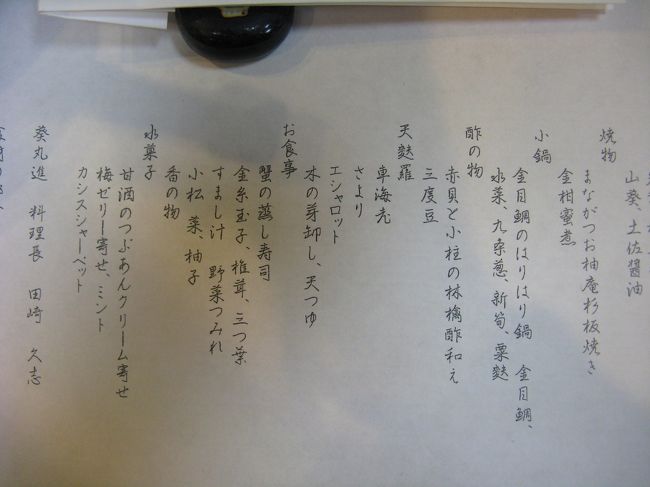 山葵、土佐醤油
焼物
まながつお柚庵杉板焼き
金柑蜜煮
小鍋
金目鯛のはりはり鍋　金目鯛、
水菜、九条葱、新筍、粟麩
酢の物
赤貝と小柱の林檎酢和え
三度豆
天麩羅
車海老
さより
エシャロット
木の芽卸し、天つゆ
お食事
蟹の蒸し寿司
金糸玉子、椎茸、三つ葉
すまし汁　野菜つみれ
小松　菜、柚子
香の物
水菓子
甘酒のつぶあんクリーム寄せ
梅ゼリー寄せ、ミント
カシスシャーベット
葵丸進　料理長　田崎　久志